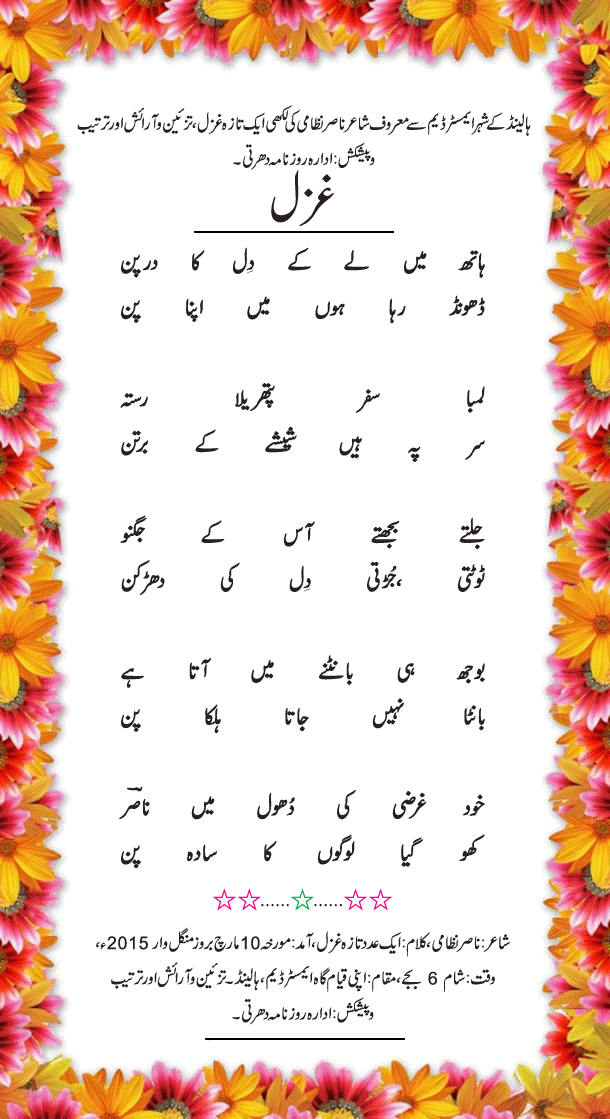 ہالینڈ کے شہر ایمسٹرڈیم سے معروف شاعر ناصر نظامی کی لکھی ایک تازہ غزل، تزئین و آرائش اور ترتیب
و پیشکش: ادارہ روزنامہ دھرتی۔
غزل
ہاتھ میں لے کے دِل کا درپن
ڈھونڈ رہا ہوں میں اپنا پن
لمبا سفر پتھریلا رستہ
سر پہ ہیں شیشے کے برتن
جلتے بجھتے آس کے جگنو
ٹوٹتی ،جُڑتی دِل کی دھڑکن
بوجھ ہی بانٹنے میں آتا ہے
بانٹا نہیں جاتا ہلکا پن
خود غرضی کی دُھول میں ناصرؔ
کھو گیا لوگوں کا سادہ پن
☆☆......☆......☆☆
شاعر: ناصر نظامی، کلام: ایک عدد تازہ غزل، آمد: مورخہ 10 مارچ بروز منگل وار 2015ء،
وقت: شام 6 بجے، مقام: اپنی قیام گاہ ایمسٹرڈیم، ہالینڈ۔ تزئین و آرائش اور ترتیب
و پیشکش: ادارہ روزنامہ دھرتی۔